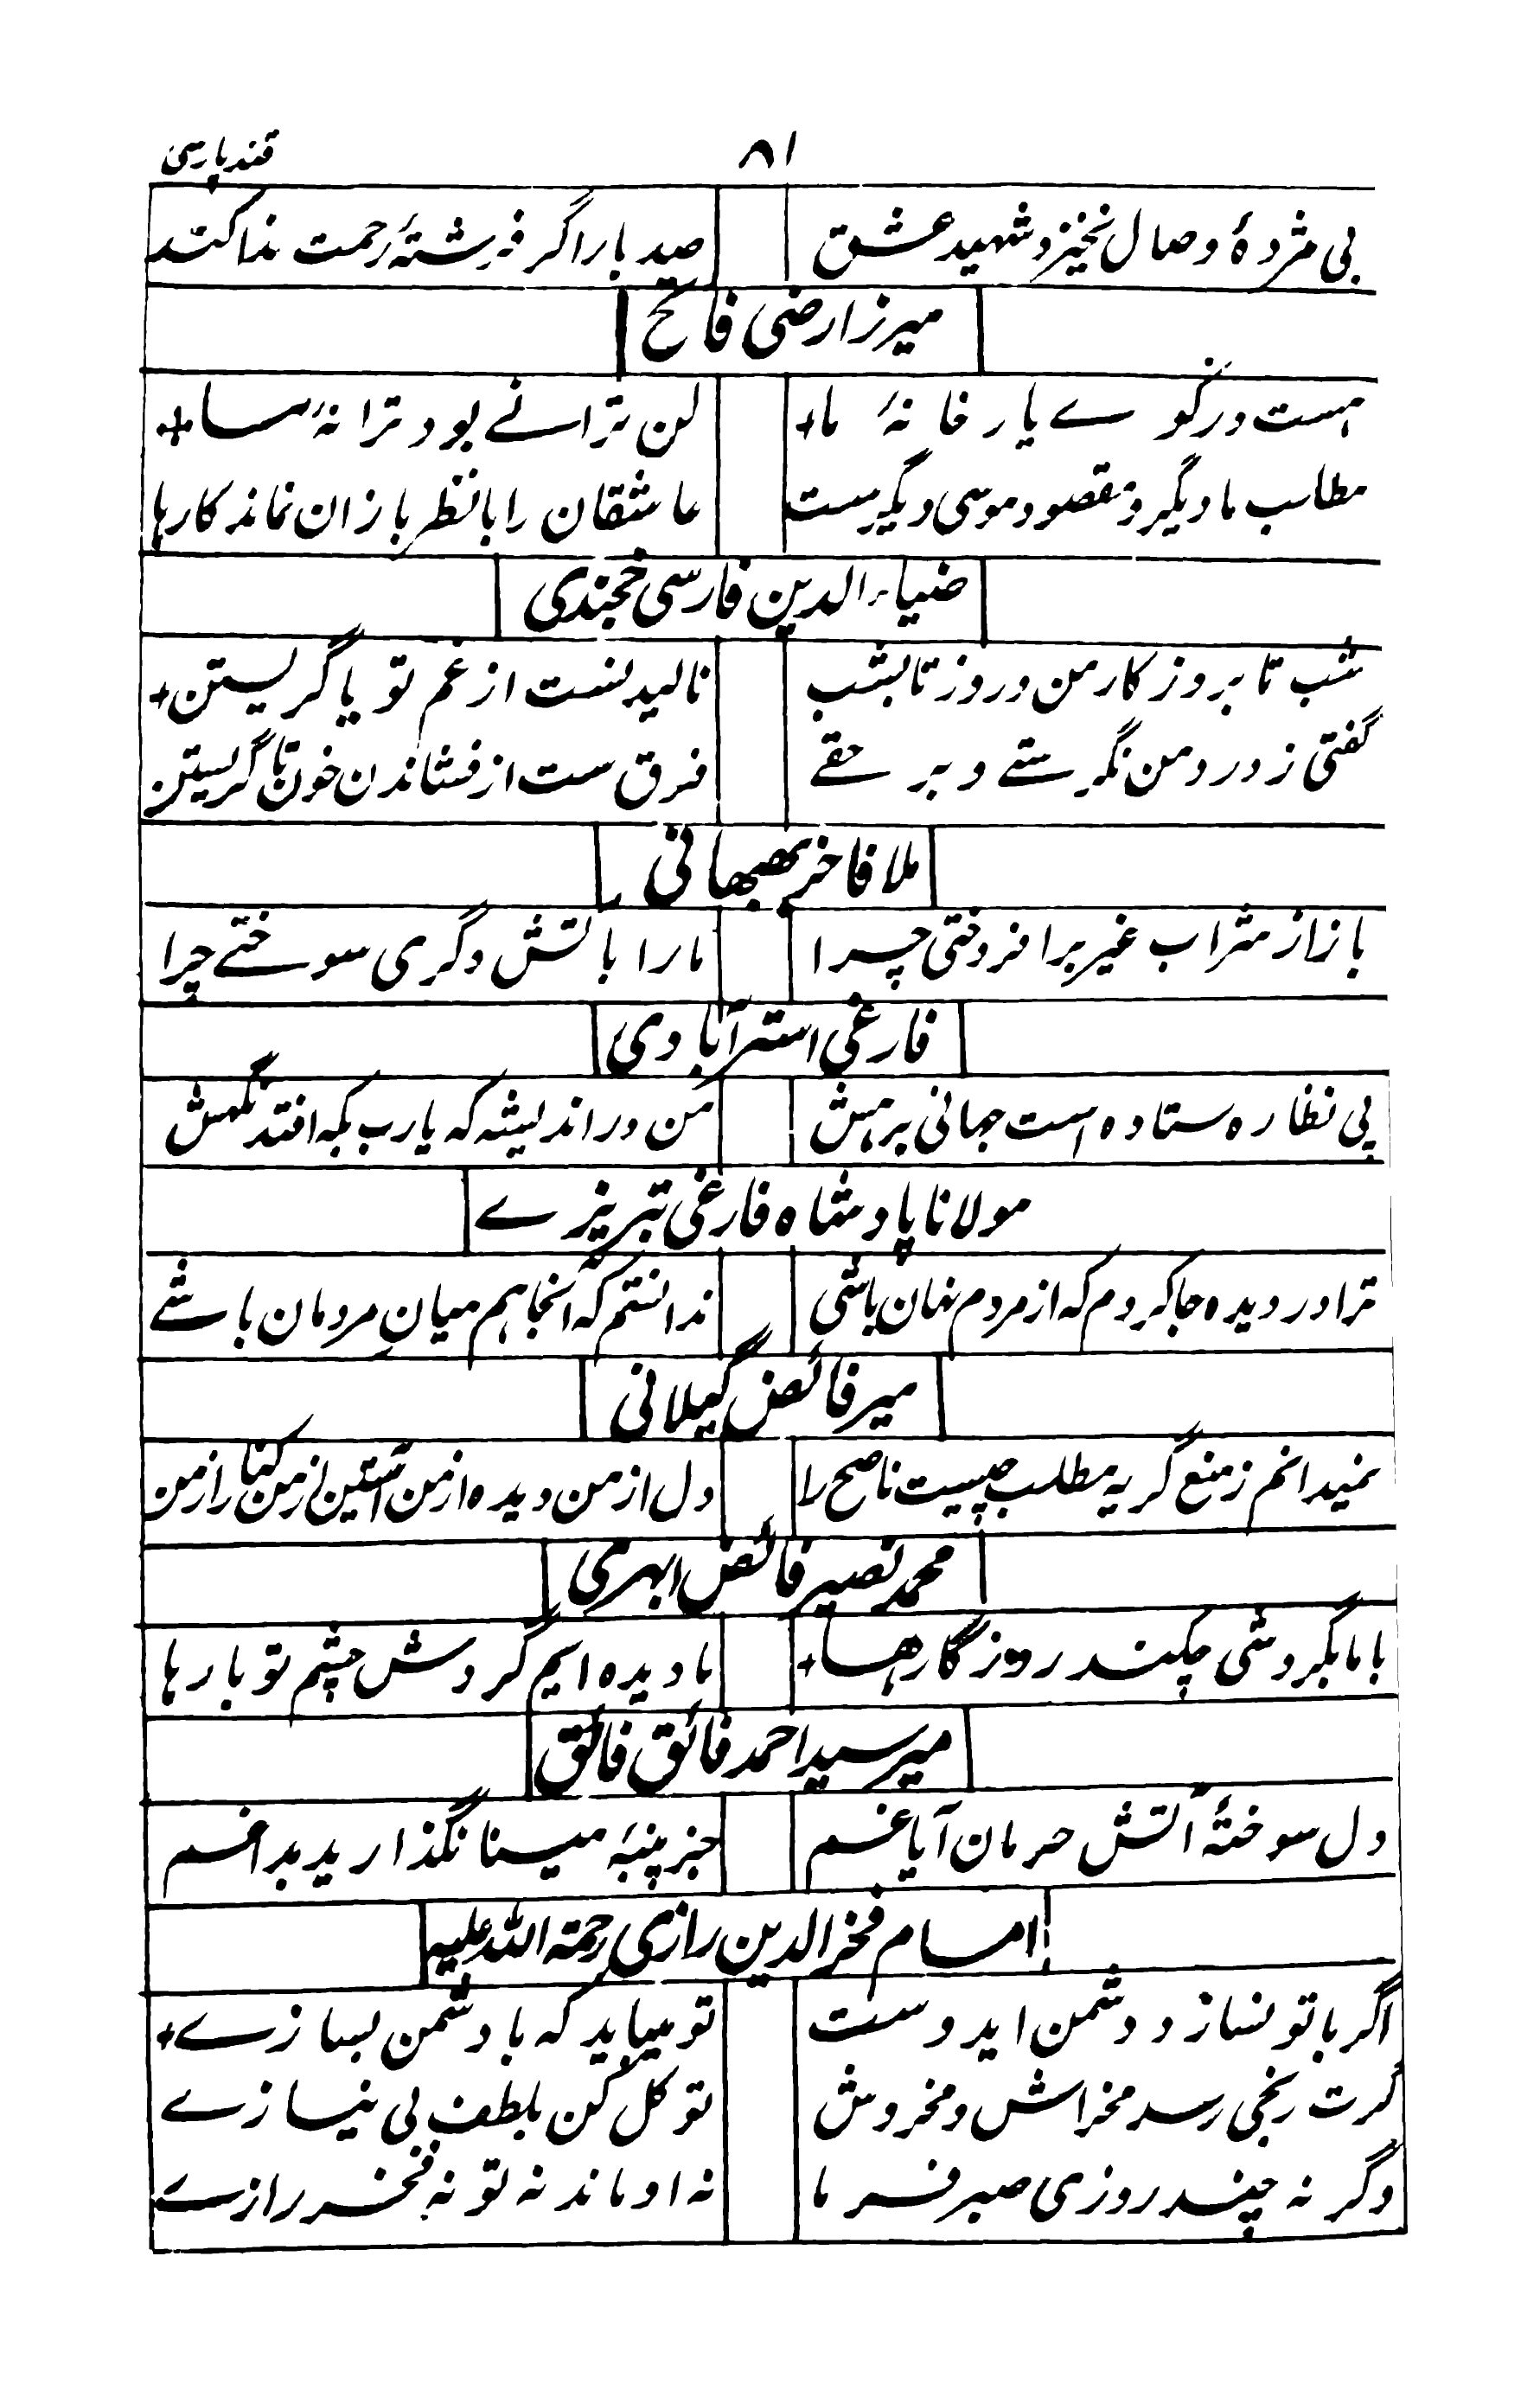 ۸۱
قند پارسی
بی مژدهٔ وصال نخیزد شهید عشق
صد بار اگر فرشتهٔ رحمت ندا کند
میرزا رضی فاتح
هست در کوے یار خانهٔ ما
لن ترانے بود ترانهٔ ما
مطلب ما دیگر و مقصود موسی دیگرست
عاشقان را با نظر بازان نماند کارها
ضیاء الدین فارسی خجندی
شب تا بروز کار من و روز تا بشب
نالیدنست از غم تو یا گریستن
گفتی ز درد من نگرستے و بر حقے
فرق ست از فشاندن خون تا گریستن
ملا فاخر بهبهانی
باز از شراب غیر برافروختی چرا
مارا بآتش دگری سوختے چرا
فارغی استرآبادی
پی نظاره ستاده است جهانی برهش
من در اندیشه که یارب بکه افتد نگهش
مولانا پادشاه فارغی تبریزے
ترا در دیده جا کردم که از مردم نهان باشی
ندانستم که آنجا هم میان مردمان باشے
میر فائض گیلانی
نمیدانم ز منع گریه مطلب چیست ناصح را
دل از من دیده از من آستین از من کنار از من
محمد نصیر فائض ابهری
با ما بگردشی چکند روزگارها
ما دیده ایم گردش چشم تو بارها
میر سید احمد فائق فائق
دل سوختهٔ آتش حرمان ایاغم
جز پنبهٔ مینا نگذارید بداغم
امام فخر الدین رازی رحمة الله علیه
اگر با تو نسازد دشمن ایدوست
تو میباید که با دشمن بسازے
گرت رنجی رسد مخراش و مخروش
توکل کن بلطف بی نیازے
وگر نه چند روزی صبر فرما
نه او ماند نه تو نه فخر رازے